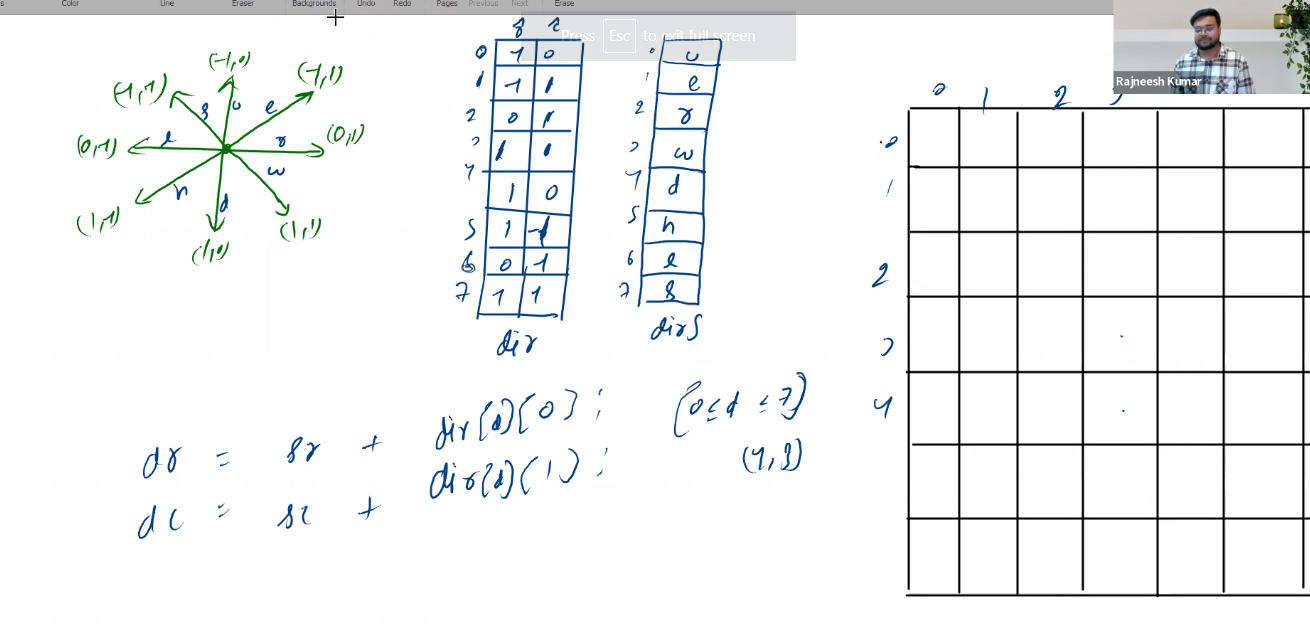 Color Line Eraser Backgrounds Undo Redo Pages Previous Next Erase
Press Esc to exit full screen
Rajneesh Kumar
(-1,0)
(-1,1)
(-1,1)
(0,1)
(0,-1)
(1,-1)
(1,0)
(1,1)
u
e
r
w
d
h
l
r c
0 -1 0
1 -1 1
2 0 1
3 1 1
4 1 0
5 1 -1
6 0 -1
7 -1 -1
dir
0 u
1 e
2 r
3 w
4 d
5 h
6 l
7 g
dirS
dr = sr + dir[d][0];
dc = sc + dir[d][1];
(0≤d≤7)
(4,3)
0 1 2 3
0
1
2
3
4